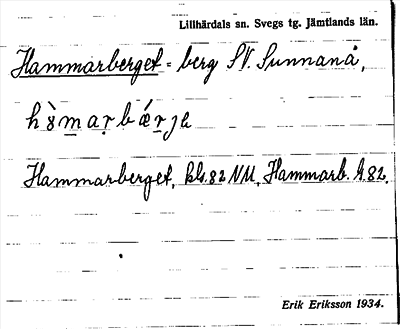 Lillhärdals sn. Svegs tg. Jämtlands län.
Hammarberget = berg SV. Sunnanå,
Hammarberget, bl.82 NM, Hammarb. k.82.
Erik Eriksson 1934.